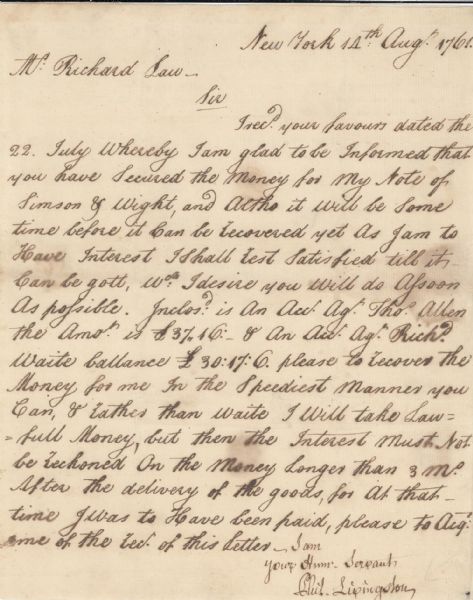 New York 14th. Augt. 1761.
Mr. Richard Law
Sir
I recd. your favours dated the
22. July Whereby I am glad to be Informed that
you have Secured the Money for My Note of
Simson & Wight, and Altho it Will be Some
time before it Can be Recovered yet As I am to
Have Interest I Shall Rest Satisfied till it
Can be gott, Wch. I desire you Will do Assoon
As possible. Inclosd. is An Acct. Agt. Thos. Allen
the Amot. is £37..16:- & An Acct. Agt. Richd.
Waite ballance £30:17:6. please to Recover the
Money for me In the Speediest Manner you
Can, & Rather than Waite I Will take Law=
=full Money, but then the Interest Must Not
be Reckoned On the Money Longer than 3 Mo.
After the delivery of the goods, for At that
time I Was to Have been paid, please to Acqt.
me of the Rect. of this Letter - I am
your Humr. Servant
Phil. Livingston